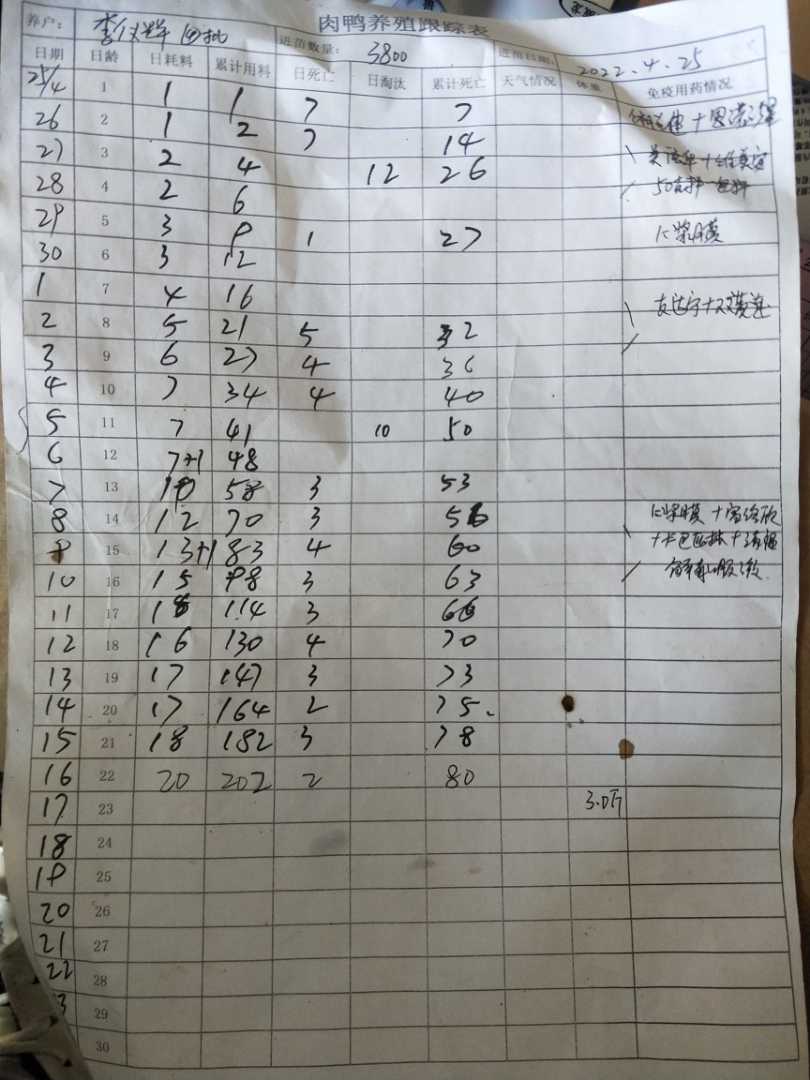 肉鸭养殖跟踪表
养户： 李仪群 四批 进苗数量： 3800 进苗日期： 2022.4.25
日期 日龄 日耗料 累计用料 日死亡 日淘汰 累计死亡 天气情况 体重 免疫用药情况
25/4 1 1 1 7 7
26 2 1 2 7 14
27 3 2 4 12 26
28 4 2 6
29 5 3 9 1 27
30 6 3 12
1 7 4 16
2 8 5 21 5 32
3 9 6 27 4 36
4 10 7 34 4 40
5 11 7 41 10 50
6 12 7+1 48
7 13 10 58 3 53
8 14 12 70 3 56
9 15 13+1 83 4 60
10 16 15 98 3 63
11 17 16 114 3 66
12 18 16 130 4 70
13 19 17 147 3 73
14 20 17 164 2 75.
15 21 18 182 3 78
16 22 20 202 2 80
17 23 3.0斤
18 24
19 25
20 26
21 27
22 28
3 29
30